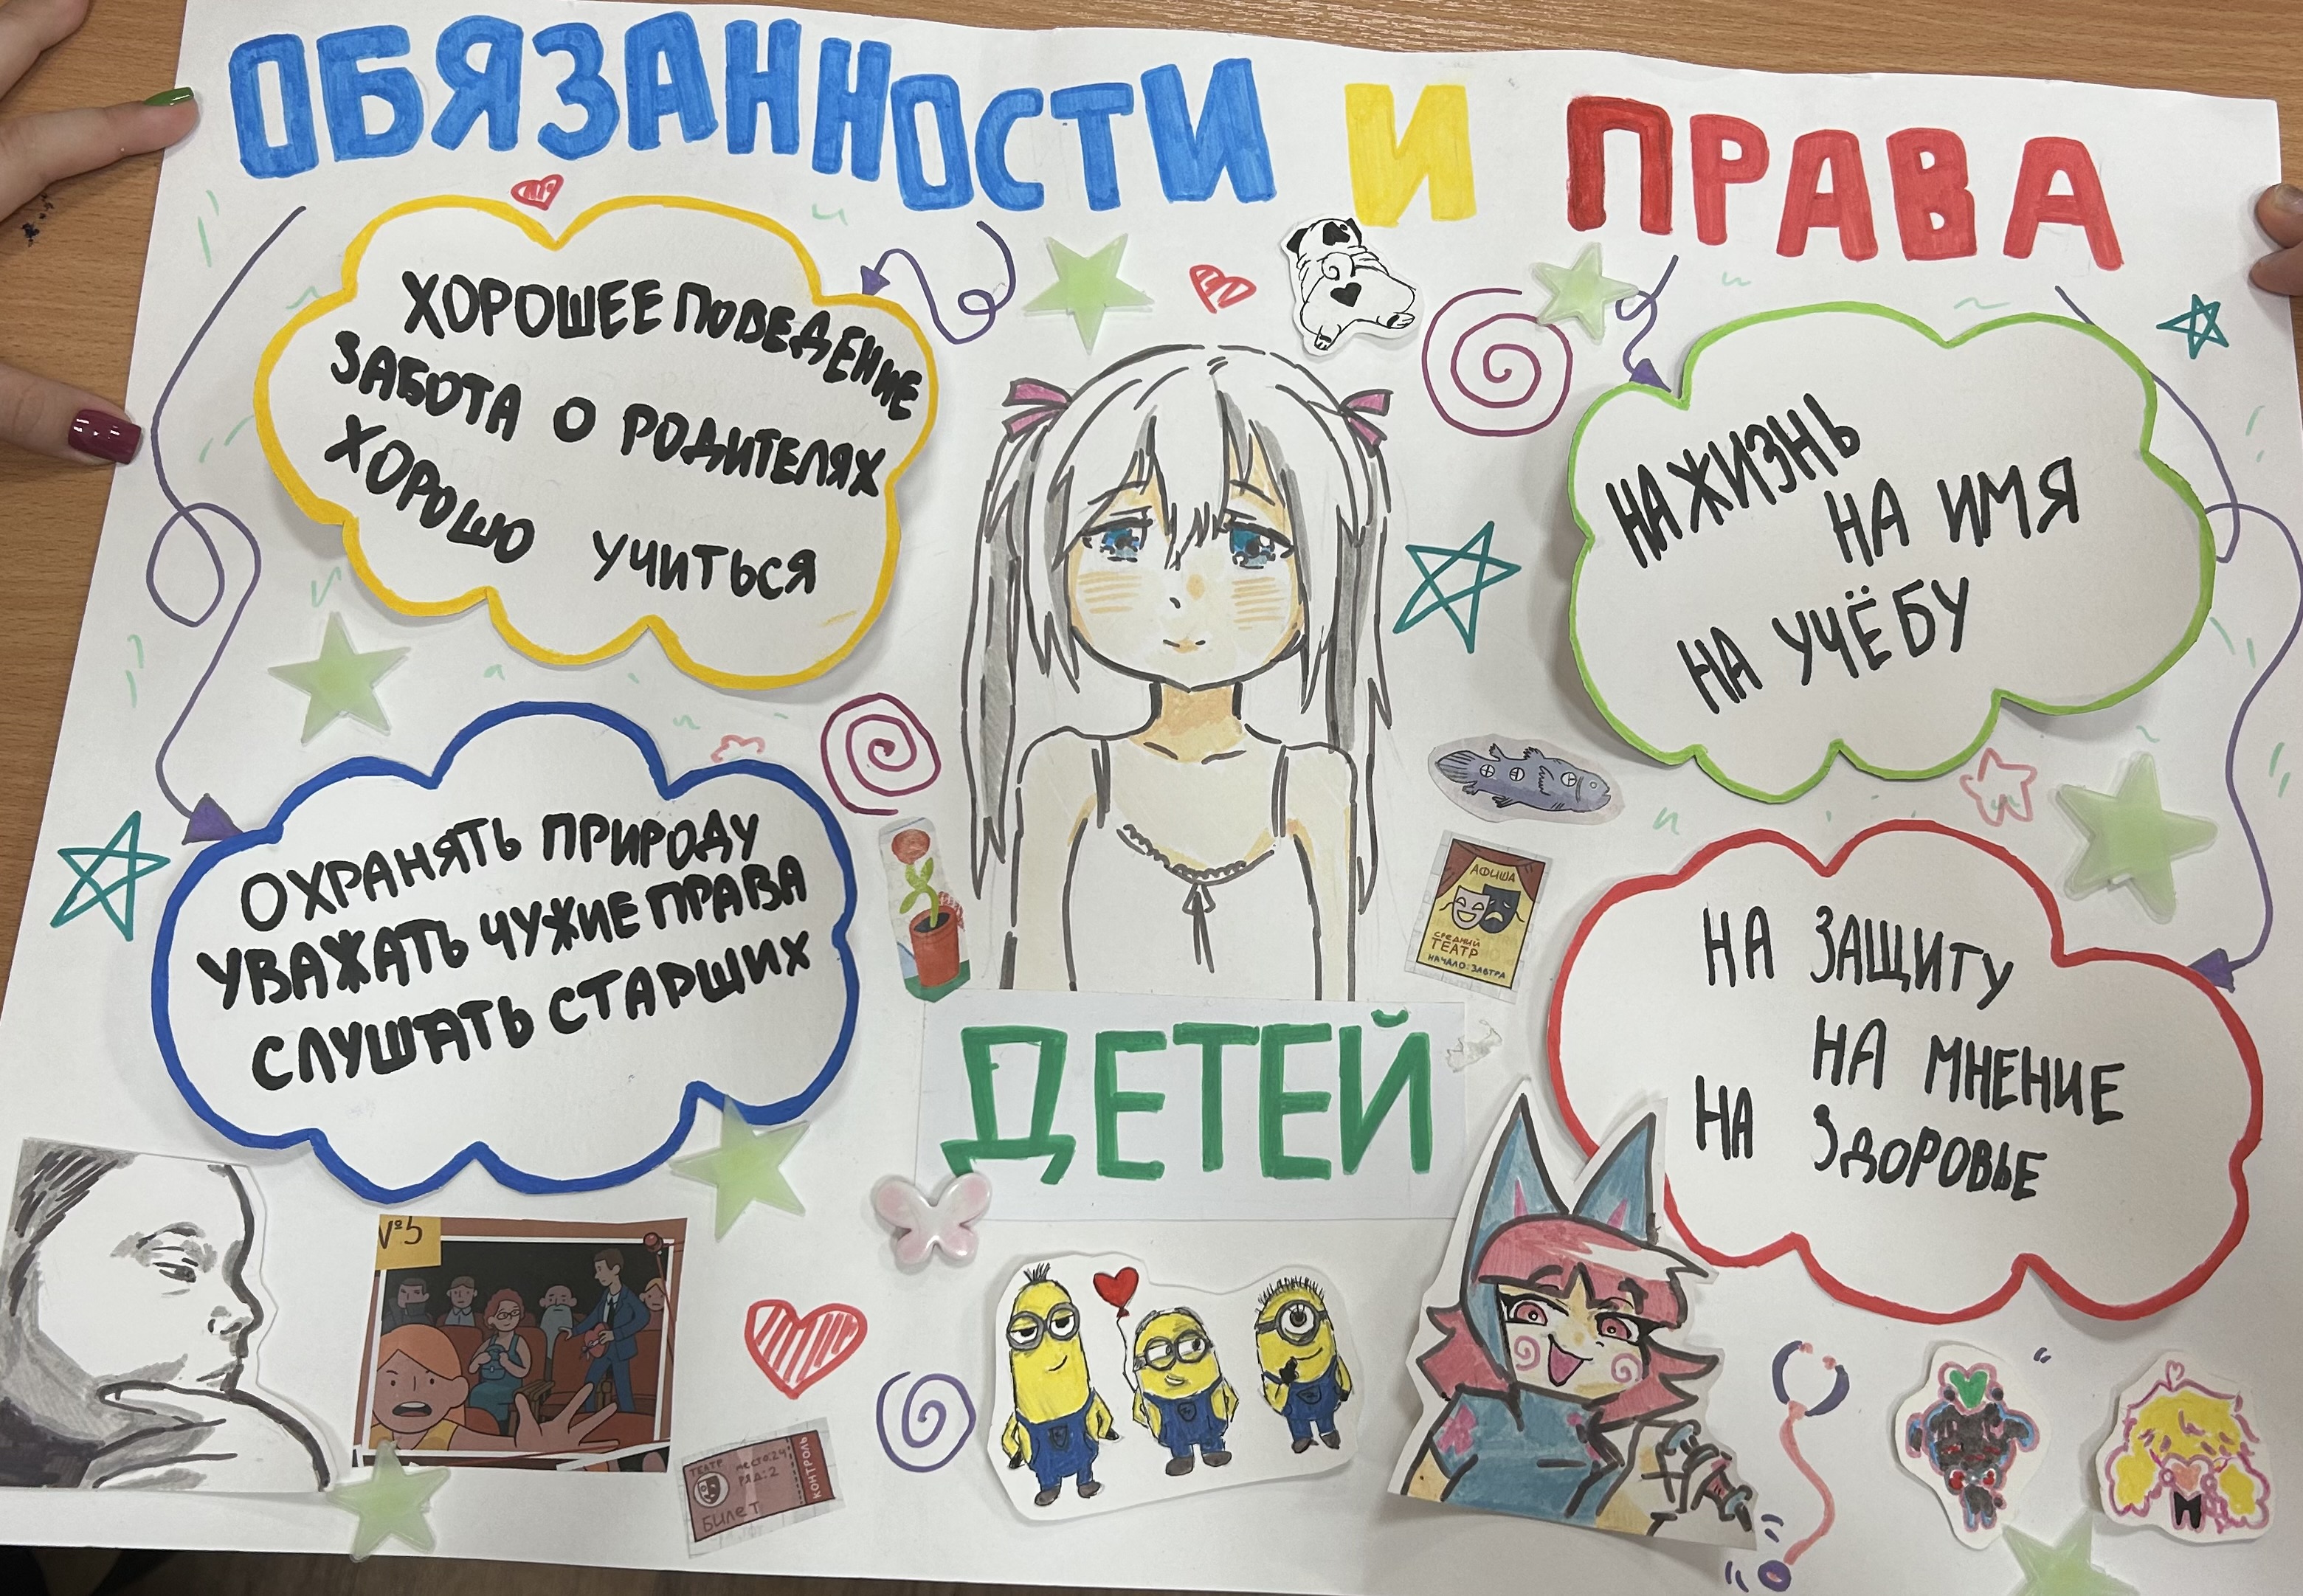 ОБЯЗАННОСТИ И ПРАВА
ХОРОШЕЕ ПОВЕДЕНИЕ
ЗАБОТА О РОДИТЕЛЯХ
ХОРОШО УЧИТЬСЯ
НА ЖИЗНЬ
НА ИМЯ
НА УЧЁБУ
ОХРАНЯТЬ ПРИРОДУ
УВАЖАТЬ ЧУЖИЕ ПРАВА
СЛУШАТЬ СТАРШИХ
АФИША
СРЕДНИЙ
ТЕАТР
НАЧАЛО: ЗАВТРА
НА ЗАЩИТУ
НА МНЕНИЕ
НА ЗДОРОВЬЕ
ДЕТЕЙ
№5
ТЕАТР
МЕСТО:24
РЯД:2
БИЛЕТ
КОНТРОЛЬ